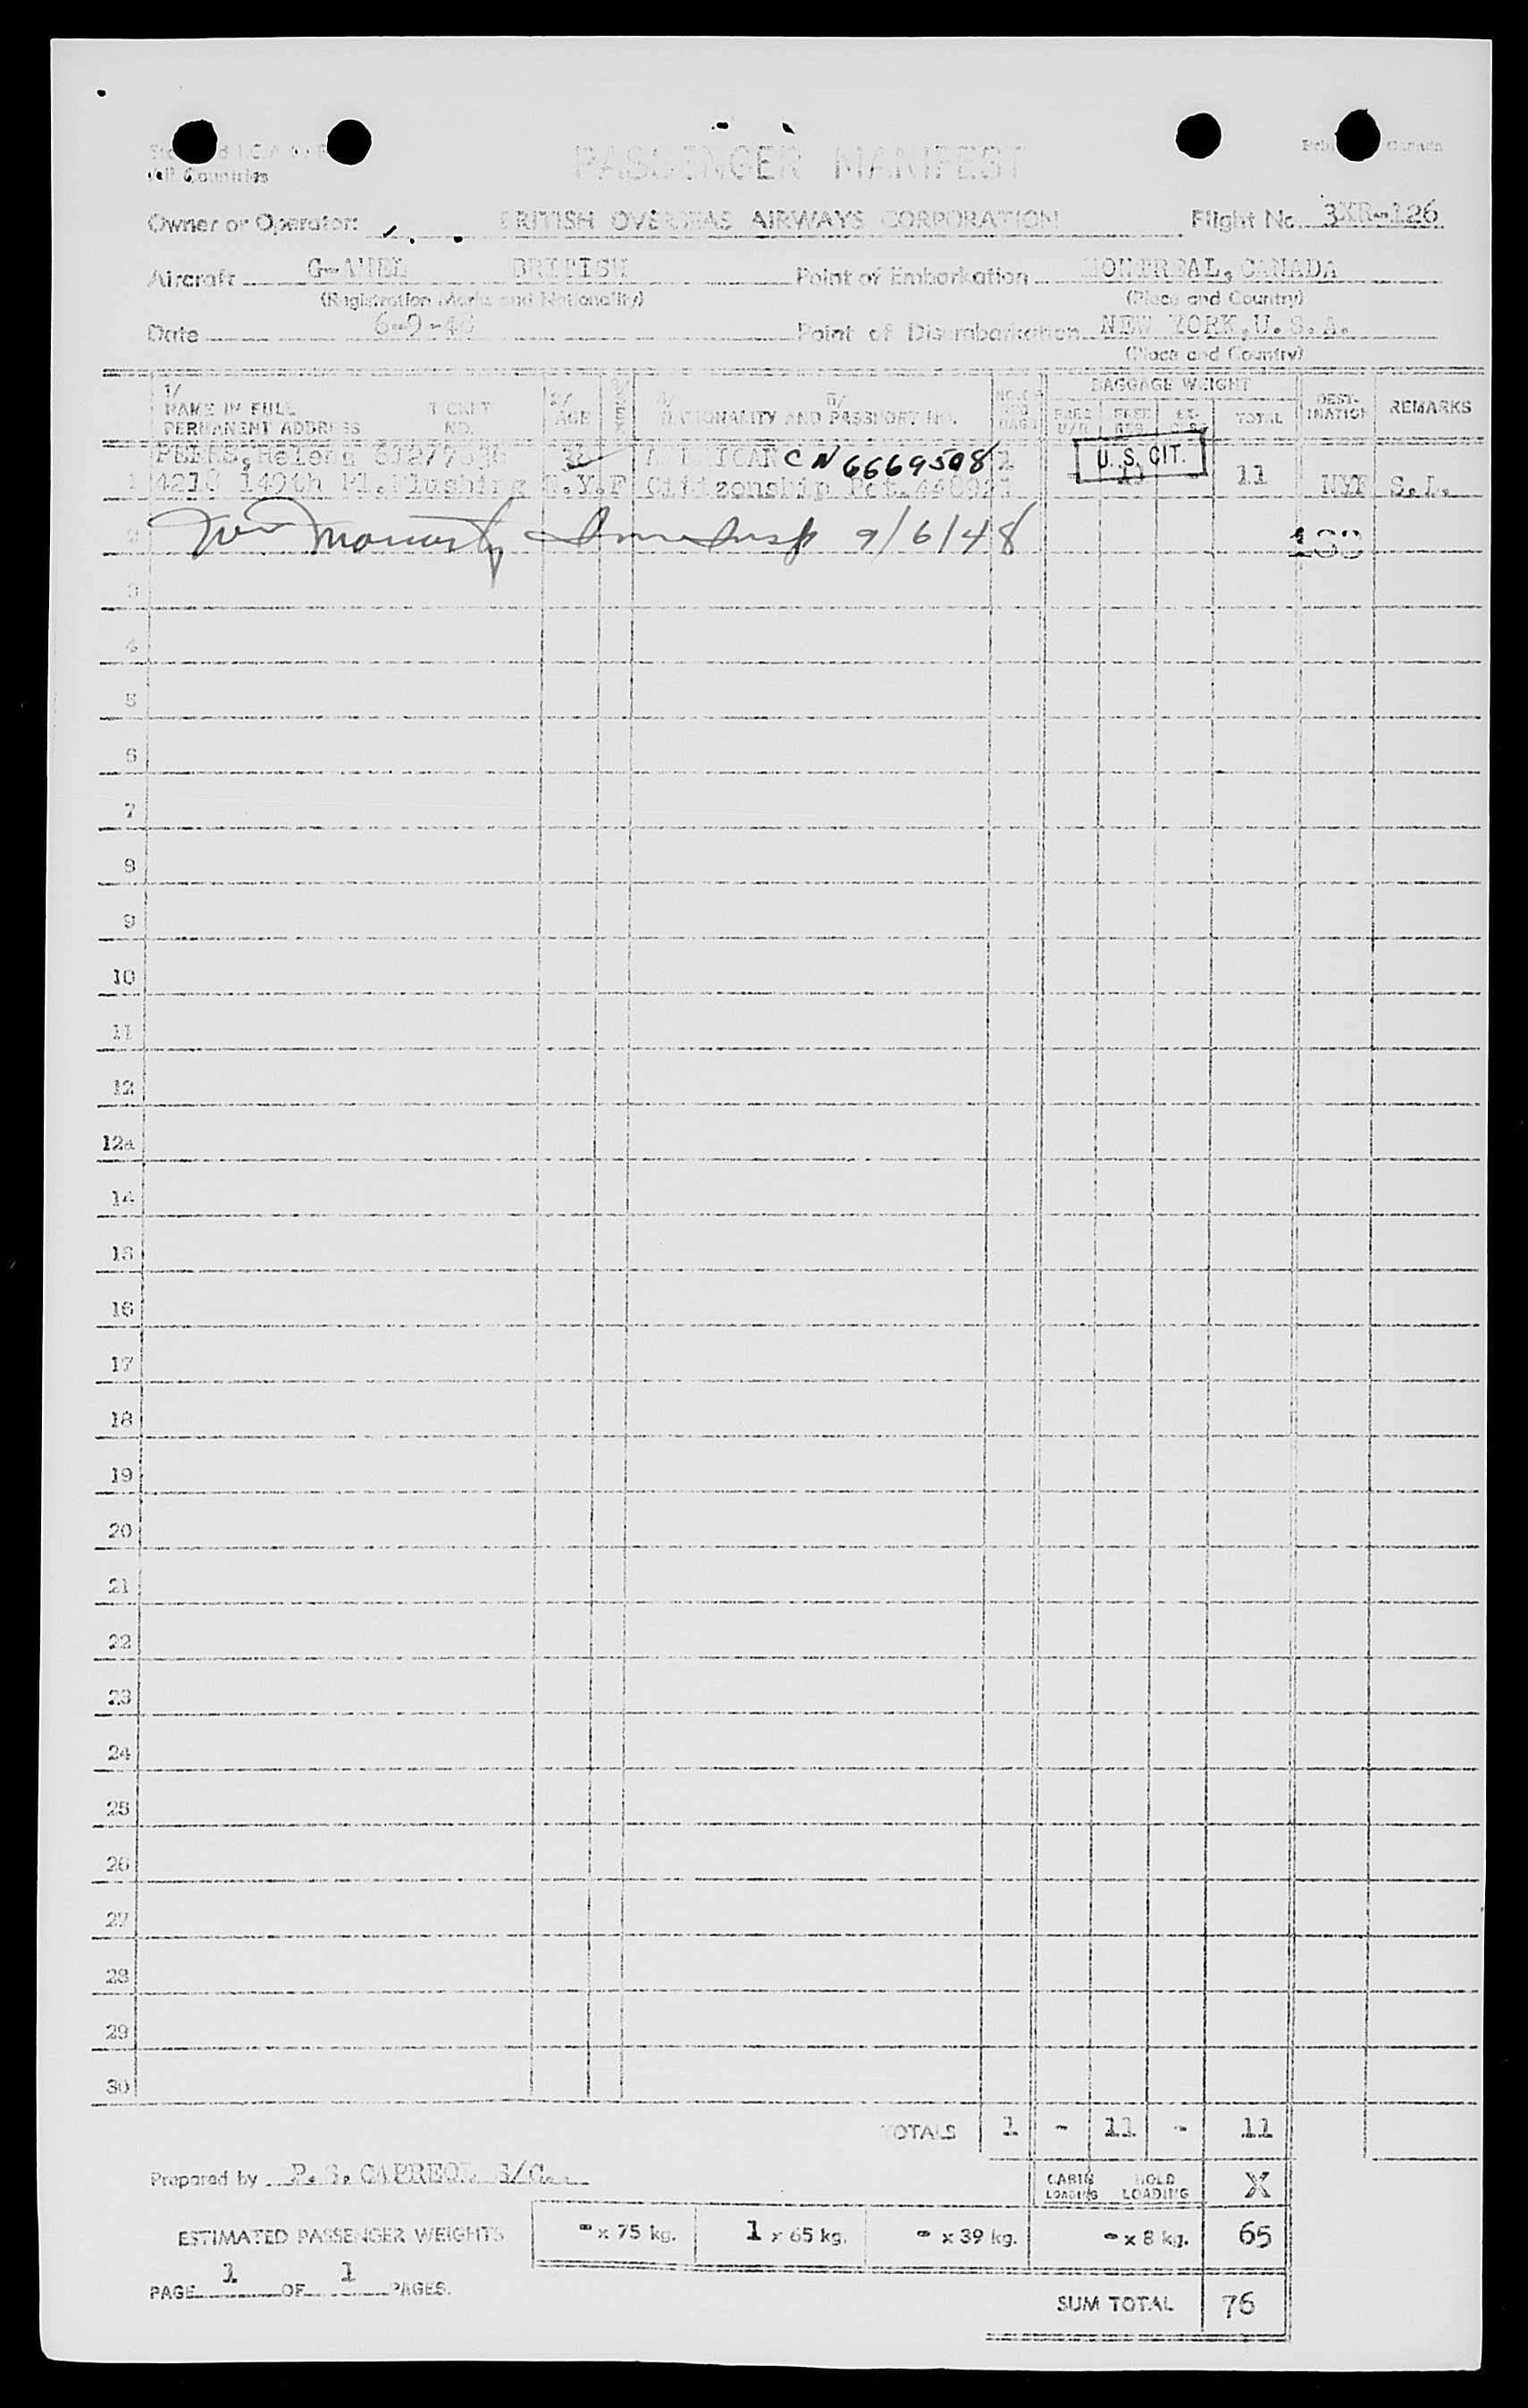 All Countries
PASSENGER MANIFEST
Owner or Operator: BRITISH OVERSEAS AIRWAYS CORPORATION Flight No. 3XR-126
Aircraft BRITISH Point of Embarkation MONTREAL, CANADA
(Registration Marks and Nationality) (Place and Country)
Date 6-9-48 Point of Disembarkation NEW YORK, U.S.A.
(Place and Country)
1/ 2/ 4/ 5/ BAGGAGE WEIGHT
NAME IN FULL TICKET AGE NATIONALITY AND PASSPORT NO. TOTAL DESTINATION REMARKS
PERMANENT ADDRESS NO.
Helena AMERICAN CN 6669508 1 U.S. CIT.
1 149th Pl. Flushing N.Y. F Citizenship 11 NYK S.I.
2 9/6/48
3
4
5
6
7
8
9
10
11
12
12a
14
15
16
17
18
19
20
21
22
23
24
25
26
27
28
29
30
TOTALS 1 - 11 - 11
Prepared by CABIN LOADING HOLD LOADING X
ESTIMATED PASSENGER WEIGHTS - x 75 kg. 1 x 65 kg. - x 39 kg. - x 8 kg. 65
PAGE 1 OF 1 PAGES.
SUM TOTAL 76